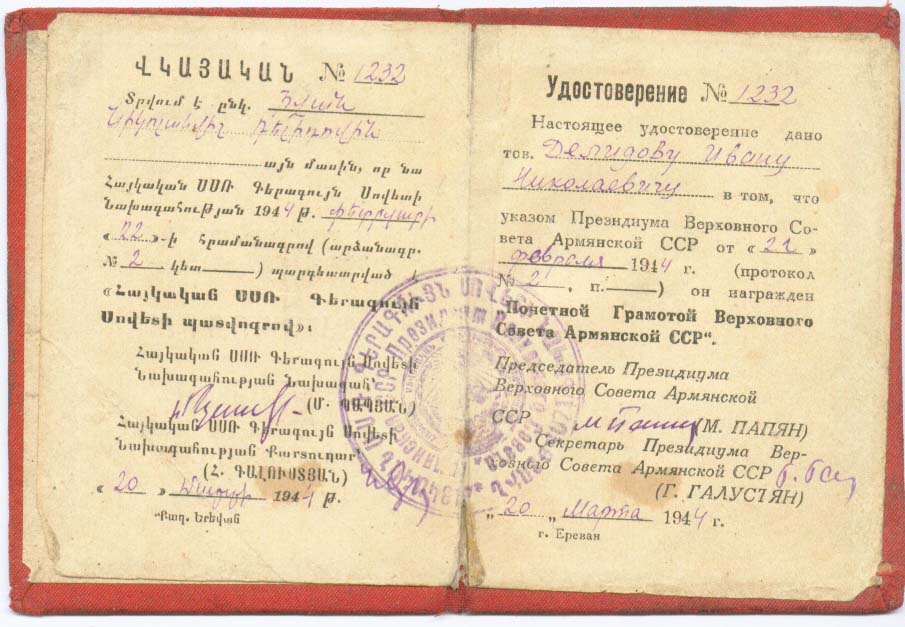 ՎԿԱՅԱԿԱՆ № 1232
Տրվում է ընկ. Իվան
Նիկոլաևիչ Դեմիդովին
այն մասին, որ նա
Հայկական ՍՍՌ Գերագույն Սովետի
Նախագահության 1944 թ. փետրվարի
« 22 »-ի հրամանագրով (արձանագր.
№ 2 կետ —) պարգևատրված է
«Հայկական ՍՍՌ Գերագույն
Սովետի պատվոգրով»:
Հայկական ՍՍՌ Գերագույն Սովետի
Նախագահության Նախագահ՝
(Մ. ՊԱՊՅԱՆ)
Հայկական ՍՍՌ Գերագույն Սովետի
Նախագահության Քարտուղար՝
(Հ. ԳԱԼՈՒՍՏՅԱՆ)
« 20 » մարտի 1944 թ.
Քաղ. Երևան
Удостоверение № 1232
Настоящее удостоверение дано
тов. Демидову Ивану
Николаевичу в том, что
указом Президиума Верховного Со-
вета Армянской ССР от « 22 »
февраля 1944 г. (протокол
№ 2, п. —) он награжден
"Почетной Грамотой Верховного
Совета Армянской ССР".
Председатель Президиума
Верховного Совета Армянской
ССР (М. ПАПЯН)
Секретарь Президиума Вер-
ховного Совета Армянской ССР
(Г. ГАЛУСТЯН)
" 20 " Марта 1944 г.
г. Ереван